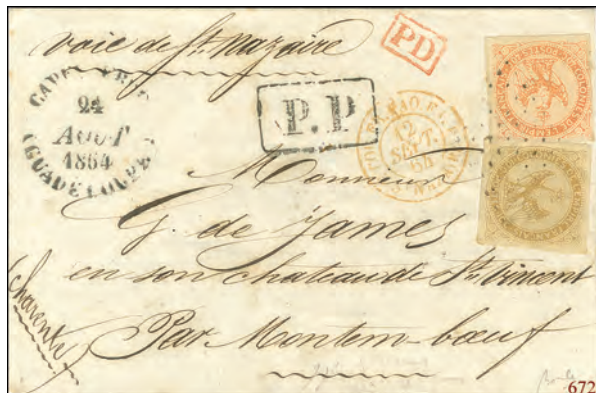 voie de St. Nazaire
PD
24
AOUT
1864
(GUADELOUPE)
P.P
12
SEPT.
64
Monsieur
G. de James
en son chateau de St. Vincent
(Charente)
Par Montem-bœuf
672